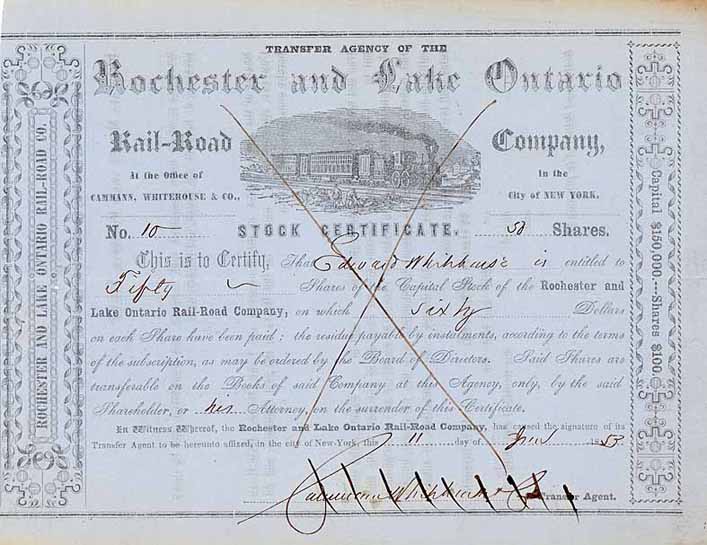 TRANSFER AGENCY OF THE
Rochester and Lake Ontario
Rail-Road Company,
At the Office of In the
CAMMANN, WHITEHOUSE & CO., City of NEW YORK.
No. 10 STOCK CERTIFICATE. 50 Shares.
This is to Certify, That Edward Whitehouse is entitled to
Fifty Shares of the Capital Stock of the Rochester and
Lake Ontario Rail-Road Company, on which sixty Dollars
on each Share have been paid; the residue payable by instalments, according to the terms
of the subscription, as may be ordered by the Board of Directors. Paid Shares are
transferable on the Books of said Company at this Agency, only, by the said
Shareholder, or his Attorney, on the surrender of this Certificate.
In Witness Whereof, the Rochester and Lake Ontario Rail-Road Company, has caused the signature of its
Transfer Agent to be hereunto affixed, in the city of New-York, this 11 day of 1853
Cammann Whitehouse & Co Transfer Agent.
ROCHESTER AND LAKE ONTARIO RAIL-ROAD CO.
Capital $150,000.—Shares $100.